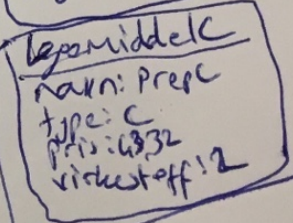 LegemiddelC
navn: PrepC
type: C
pris:
virkestoff: 2